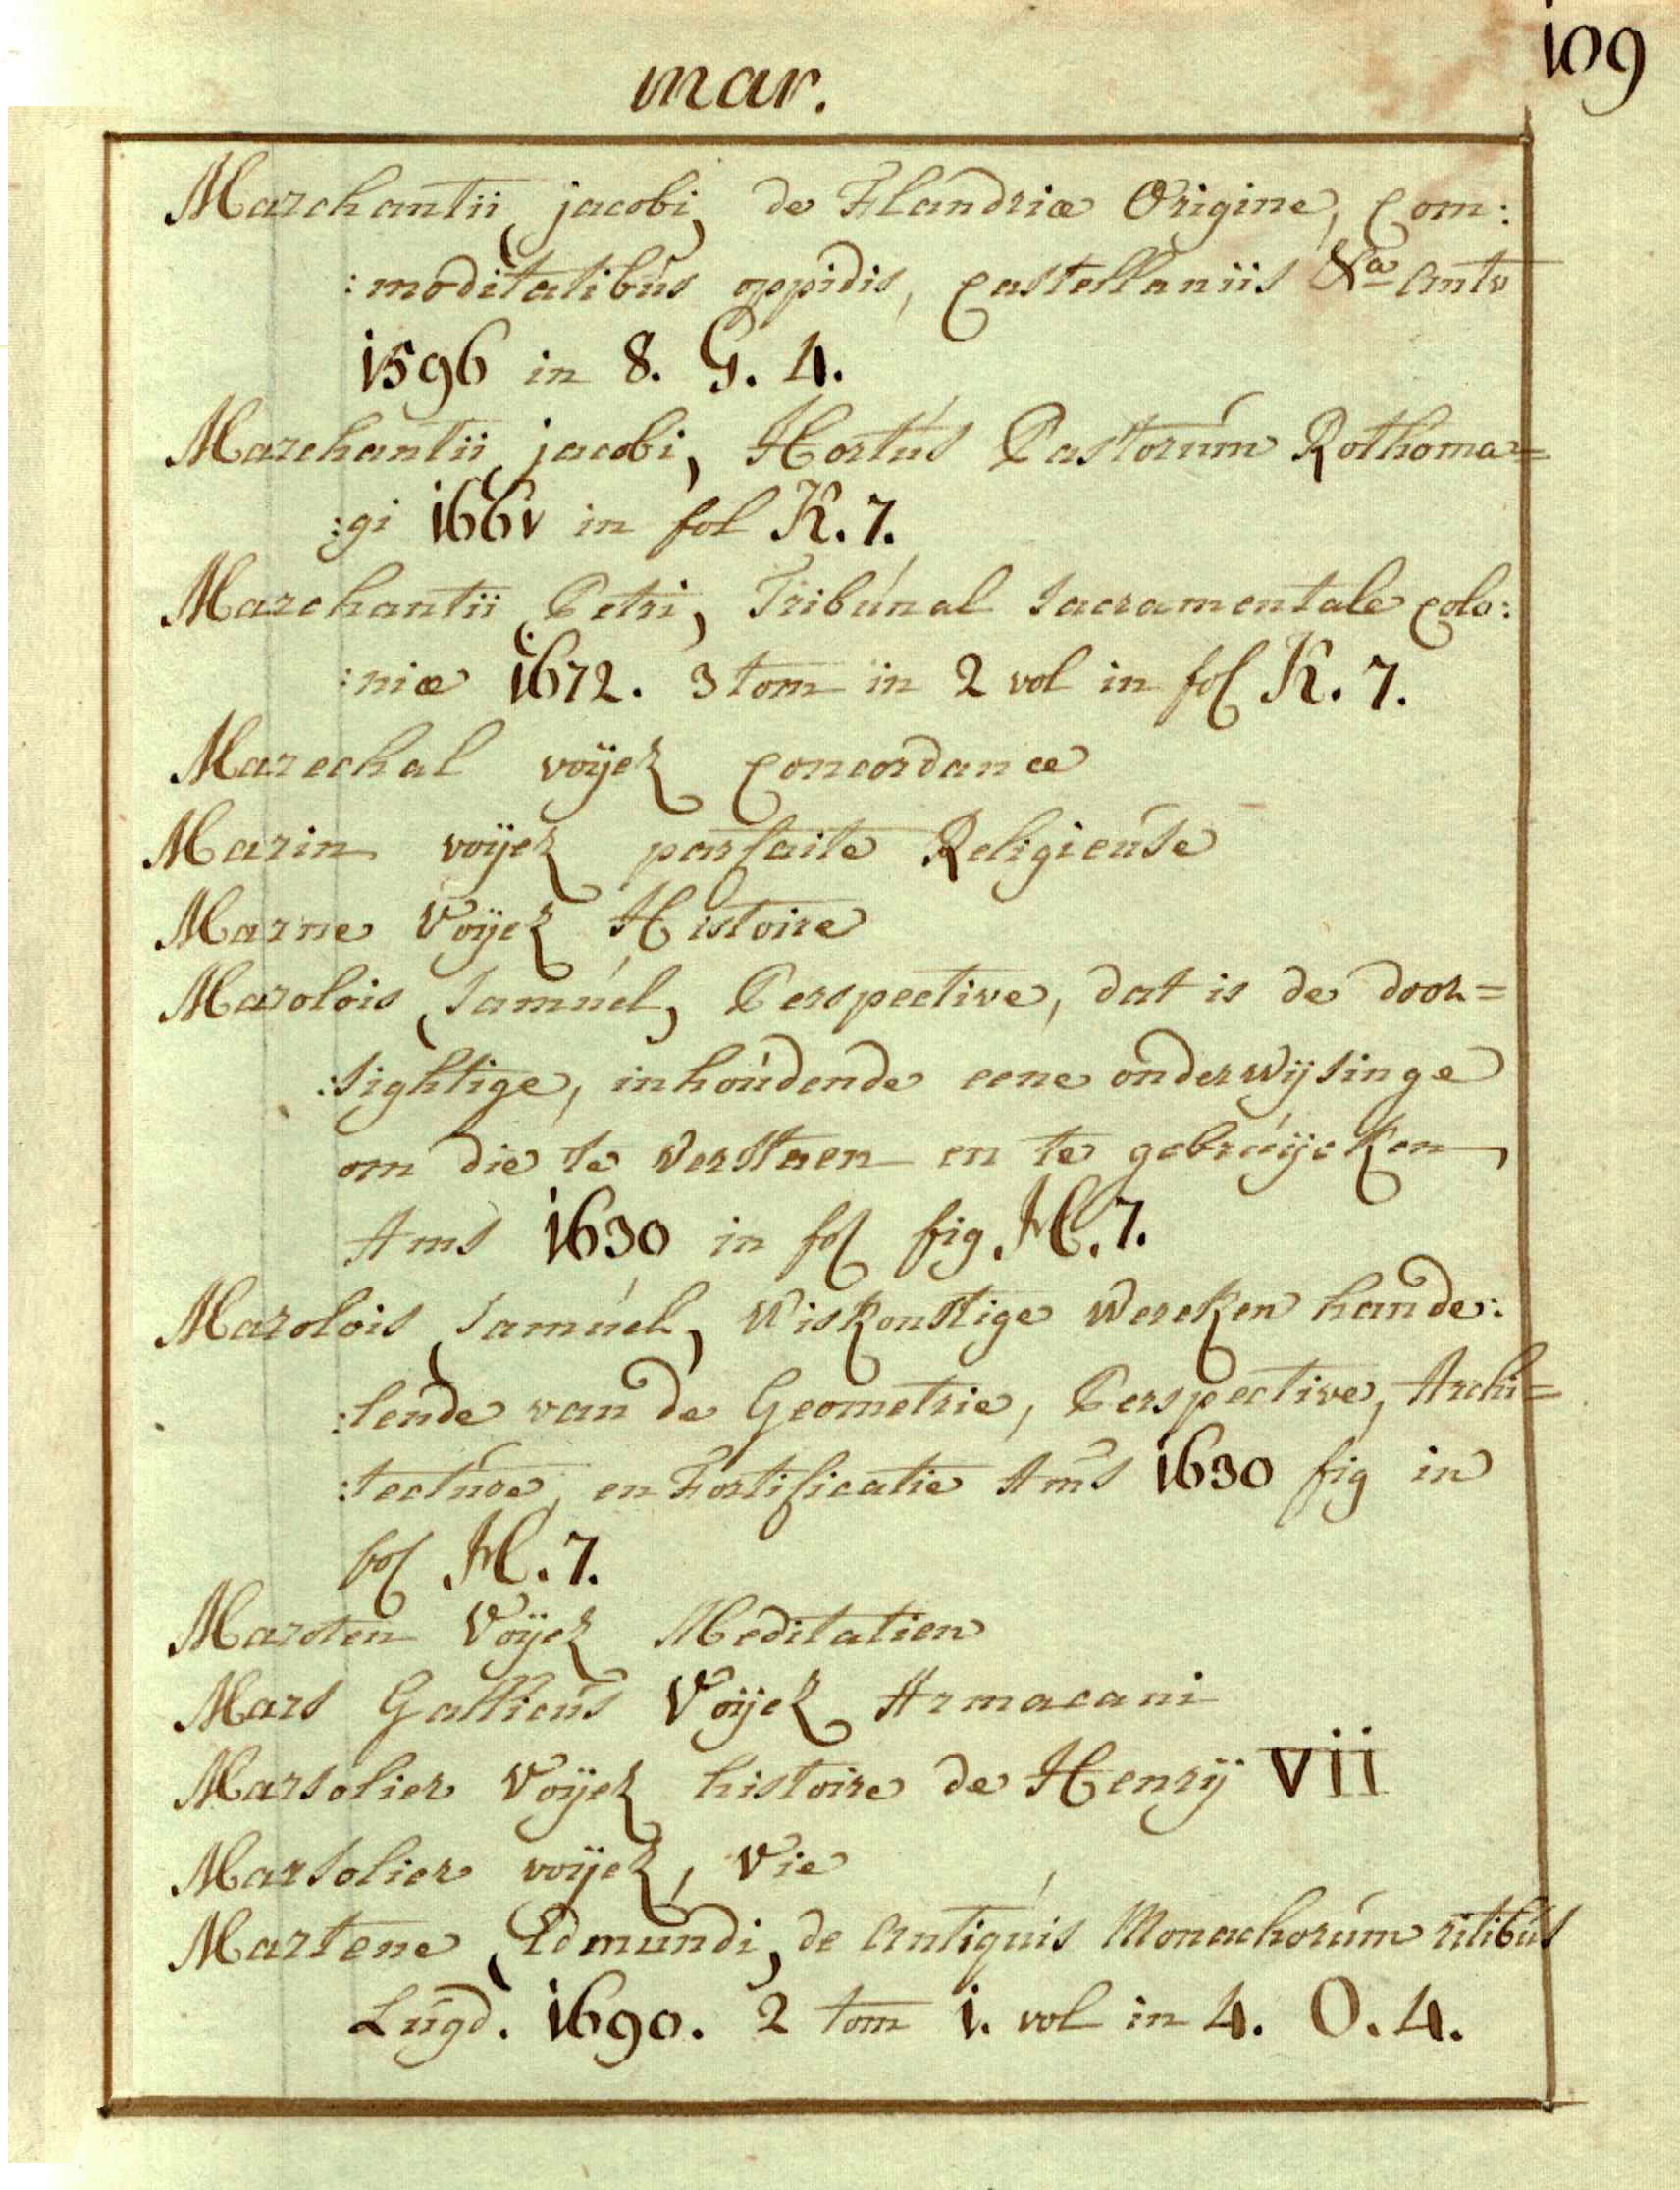 109
mar.
Marchantii (jacobi) de Flandriæ Origine, Com:
:moditatibus oppidis, Castellaniis &a Antv
1596 in 8. G. 4.
Marchantii (jacobi) Hortus Pastorum Rothoma=
:gi 1661 in fol K. 7.
Marchantii (Petri) Tribunal Sacramentale Colo:
:niæ 1672. 3 tom in 2 vol in fol K. 7.
Marechal voÿez Concordance
Marin voÿez parfaite Religieuse
Marne Voÿez Histoire
Marolois (Samuel) Perspective, dat is de door=
:sightige, inhoudende eene onderwÿsinge
om die te verstaen en te gebruÿcken
Ams 1630 in fol fig M. 7.
Marolois (Samuel) Wiskonstige Wercken hande:
:lende van de Geometrie, Perspective, Archi=
:tecture, en Fortificatie Ams 1630 fig in
fol M. 7.
Maroten Voÿez Meditatien
Mars Gallicus Voÿez Armacani
Marsolier Voÿez histoire de Henrÿ vii
Marsolier voÿez, Vie
Martene (Edmundi) de Antiquis Monachorum ritibus
Lugd. 1690. 2 tom 1. vol in 4. O. 4.